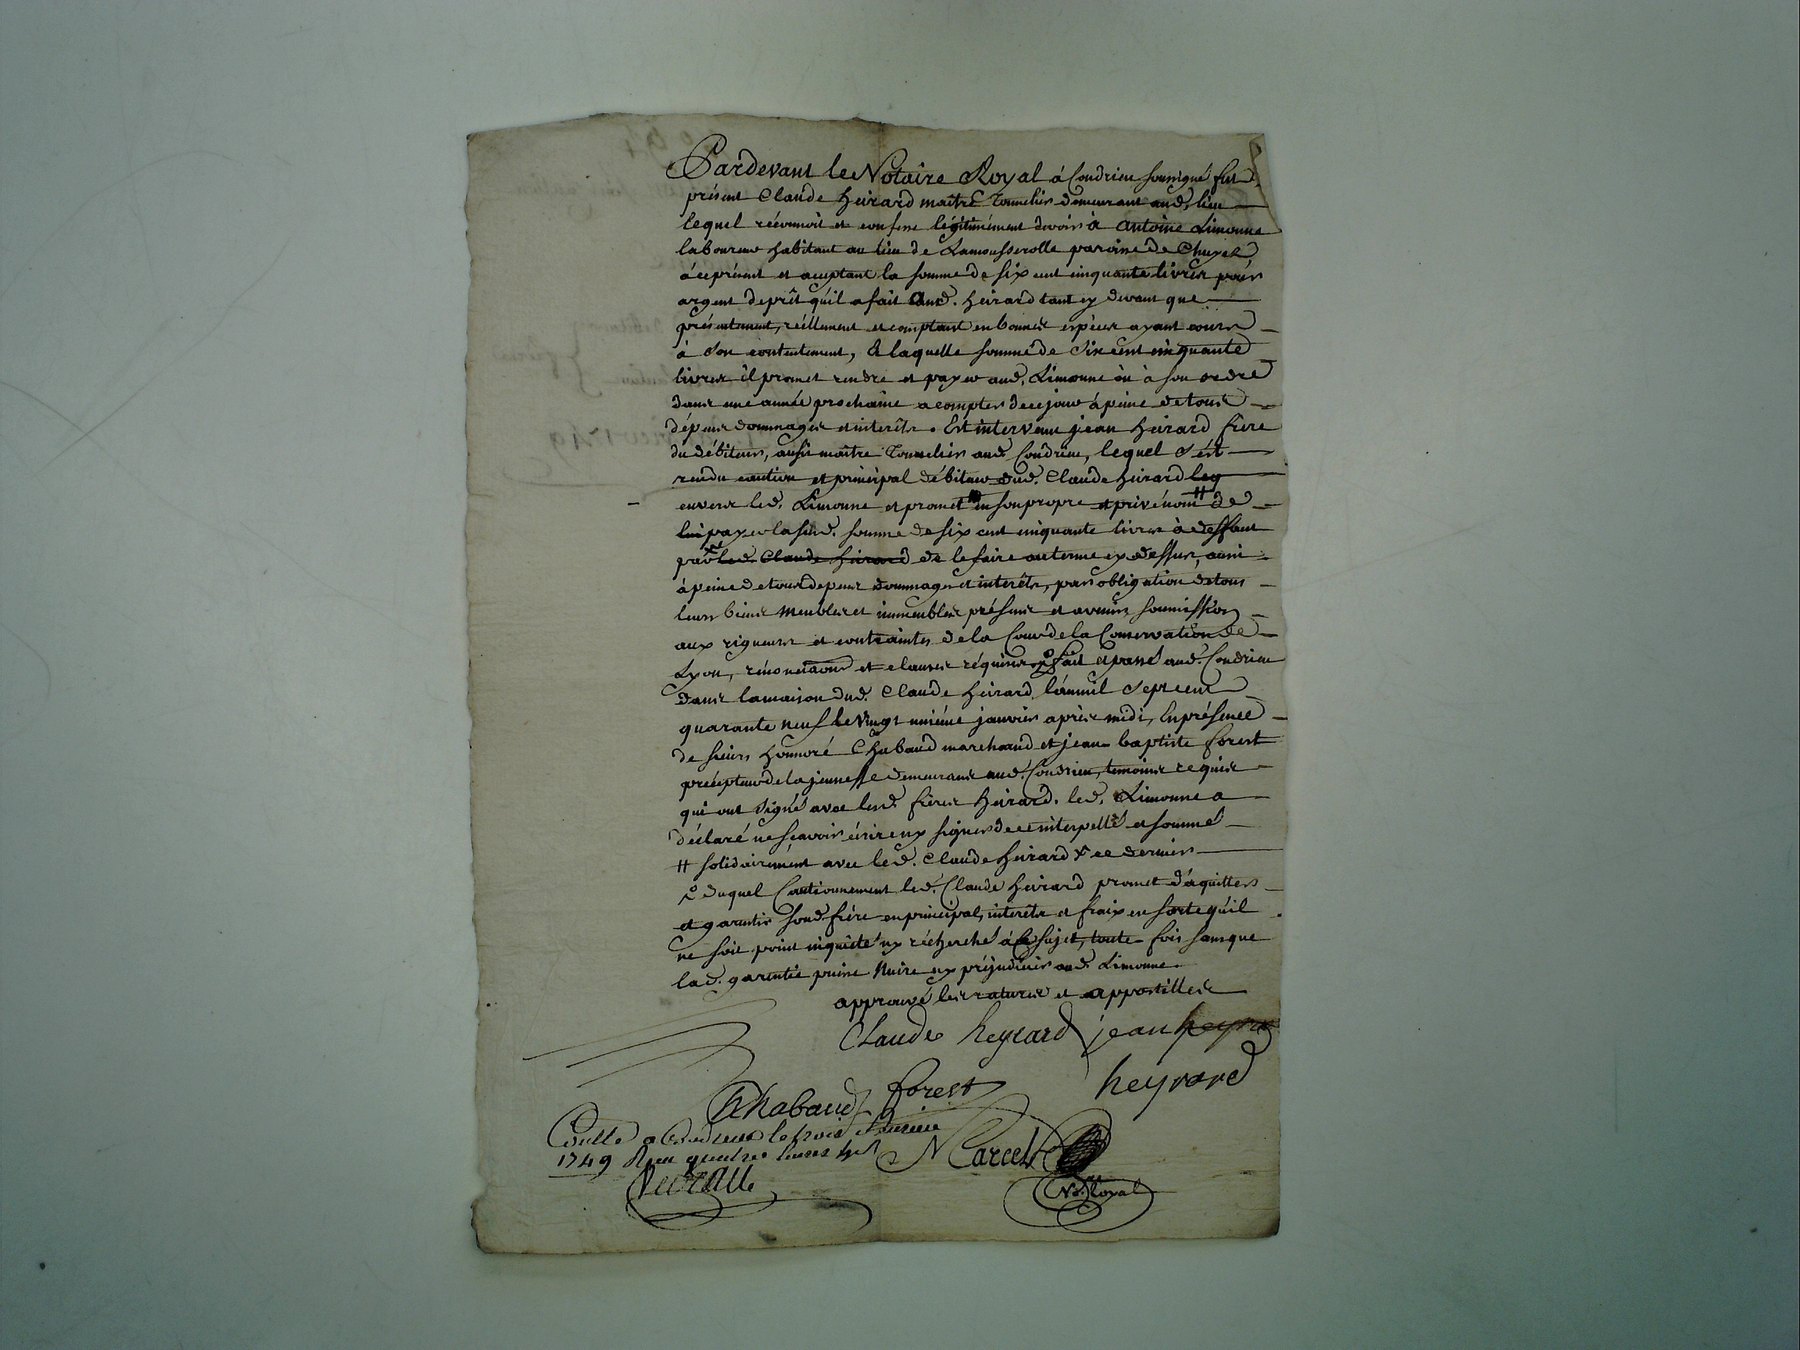 Pardevant le Notaire Royal à Condrieu soussigné fut
présent Claude heirard maître Tonnelier demeurant aud. lieu
lequel réconnoit et confesse légitimément devoir à antoine Limonne
laboureur habitant au lieu de Lamousserolle paroisse de Chuyes
à ce présent et acceptant la somme de six cent cinquante livres pour
argent de prêt qu'il a fait aud. heirard tant cy devant que
présentement, réellement et comptant en bonnes espèces ayant cours
à son contentement, & laquelle somme de six cent cinquante
livres il promet rendre et payer aud. Limonne ou à son ordre
dans une année prochaine a compter de ce jour à peine de tous
dépens dommages et interêts. Est intervenu jean heirard frere
du débiteur, aussi maître Tonnelier aud. Condrieu, lequel s'est
rendu caution et principal débiteur dud. Claude heirard
envers led. Limonne et promet en son propre et privé nom # de
lui payer la susd. somme de six cent cinquante livres à deffaut
par led. Claude heirard de le faire au terme cy dessus, aussi
à peine de tous dépens dommages et interêts, par obligation de tous
leurs biens meubles et immeubles présens et avenir soumission
aux rigueurs et contraintes de la Cour de la Conservation de
Lyon, rénonciations et clauses réquises fait et passé aud. Condrieu
dans la maison dud. Claude heirard, l'an mil sept cent
quarante neuf le vingt unième janvier après midi, En présence
de sieurs honnoré Chabaud marchand et jean baptiste forest
précepteur de la jeunesse demeurans aud. Condrieu, témoins requis
qui ont signé avec lesd. frères heirard. led. Limonne a
déclaré ne sçavoir écrire ny signer de ce interpellé et sommé
# solidairement avec led. Claude heirard x ce dernier
duquel Cautionnement led. Claude heirard promet d'aquitter
et garantir sond. frère en principal, interêts et fraix en sorte qu'il
ne soit point inquiété ny récherché à ce sujet, toute fois sans que
lad. garantie puisse Nuire ny préjudicier aud. Limonne
approuvé les ratures et appostilles
Claude heyrard jean
heyrard
Chabaud forest
Conllé a Condrieu le trois fevrier
1749 Reçu quatre livres
Marcel
Nre. Royal